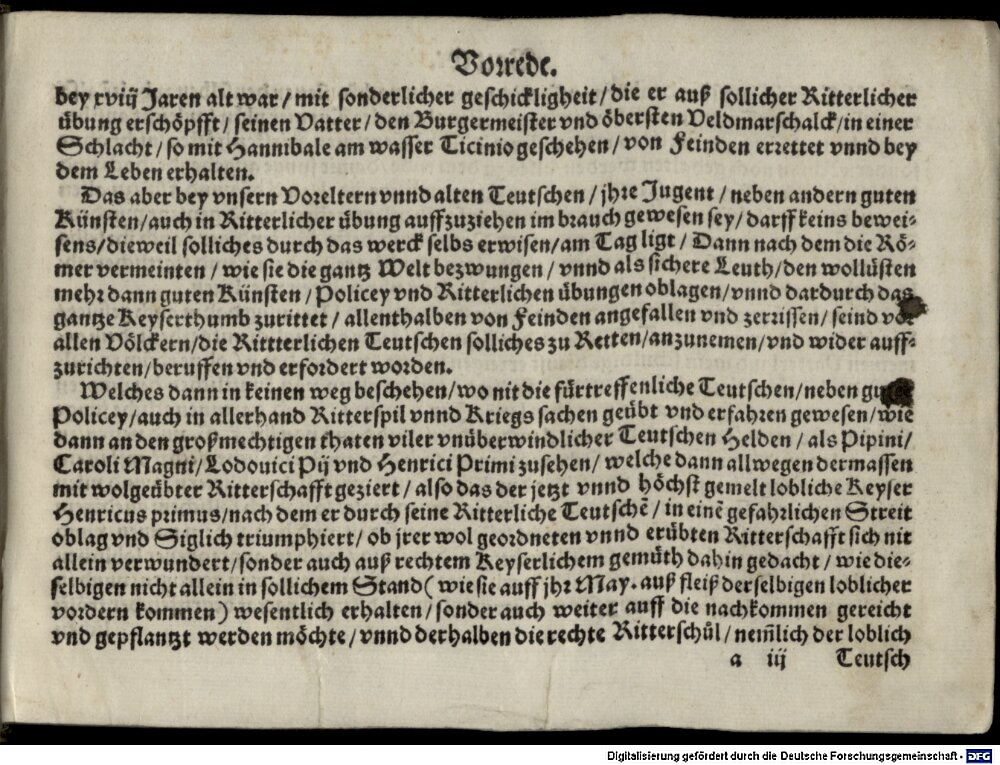 Vorrede.
bey xviij Jaren alt war / mit sonderlicher geschickligheit / die er auß sollicher Ritterlicher
übung erschöpfft / seinen Vatter / den Burgermeister vnd öbersten Veldmarschalck / in einer
Schlacht / so mit Hannibale am wasser Ticinio geschehen / von Feinden errettet vnnd bey
dem Leben erhalten.
Das aber bey vnsern Voreltern vnnd alten Teutschen / jhre Jugent / neben andern guten
Künsten / auch in Ritterlicher übung auffzuziehen im brauch gewesen sey / darff keins bewei-
sens / dieweil solliches durch das werck selbs erwisen / am Tag ligt / Dann nach dem die Rö-
mer vermeinten / wie sie die gantz Welt bezwungen / vnnd als sichere Leuth / den wollüsten
mehr dann guten Künsten / Policey vnd Ritterlichen übungen oblagen / vnnd dardurch das
gantze Keyserthumb zurittet / allenthalben von Feinden angefallen vnd zerrissen / seind vor
allen Völckern / die Rittterlichen Teutschen solliches zu Retten / anzunemen / vnd wider auff-
zurichten / beruffen vnd erfordert worden.
Welches dann in keinen weg beschehen / wo nit die fürtreffenliche Teutschen / neben
Policey / auch in allerhand Ritterspil vnnd Kriegs sachen geübt vnd erfahren gewesen / wie
dann an den großmechtigen thaten viler vnüberwindlicher Teutschen Helden / als Pipini /
Caroli Magni / Lodouici Pij vnd Henrici Primi zusehen / welche dann allwegen dermassen
mit wolgeübter Ritterschafft geziert / also das der jetzt vnnd höchst gemelt lobliche Keyser
Henricus primus / nach dem er durch seine Ritterliche Teutschē / in einē gefahrlichen Streit
oblag vnd Siglich triumphiert / ob jrer wol geordneten vnnd erübten Ritterschafft sich nit
allein verwundert / sonder auch auß rechtem Keyserlichem gemüth dahin gedacht / wie die-
selbigen nicht allein in sollichem Stand ( wie sie auff jhr May. auß fleiß derselbigen loblicher
vordern kommen ) wesentlich erhalten / sonder auch weiter auff die nachkommen gereicht
vnd gepflantzt werden möchte / vnnd derhalben die rechte Ritterschůl / nem̄lich der loblich
a iij Teutsch
Digitalisierung gefördert durch die Deutsche Forschungsgemeinschaft - DFG